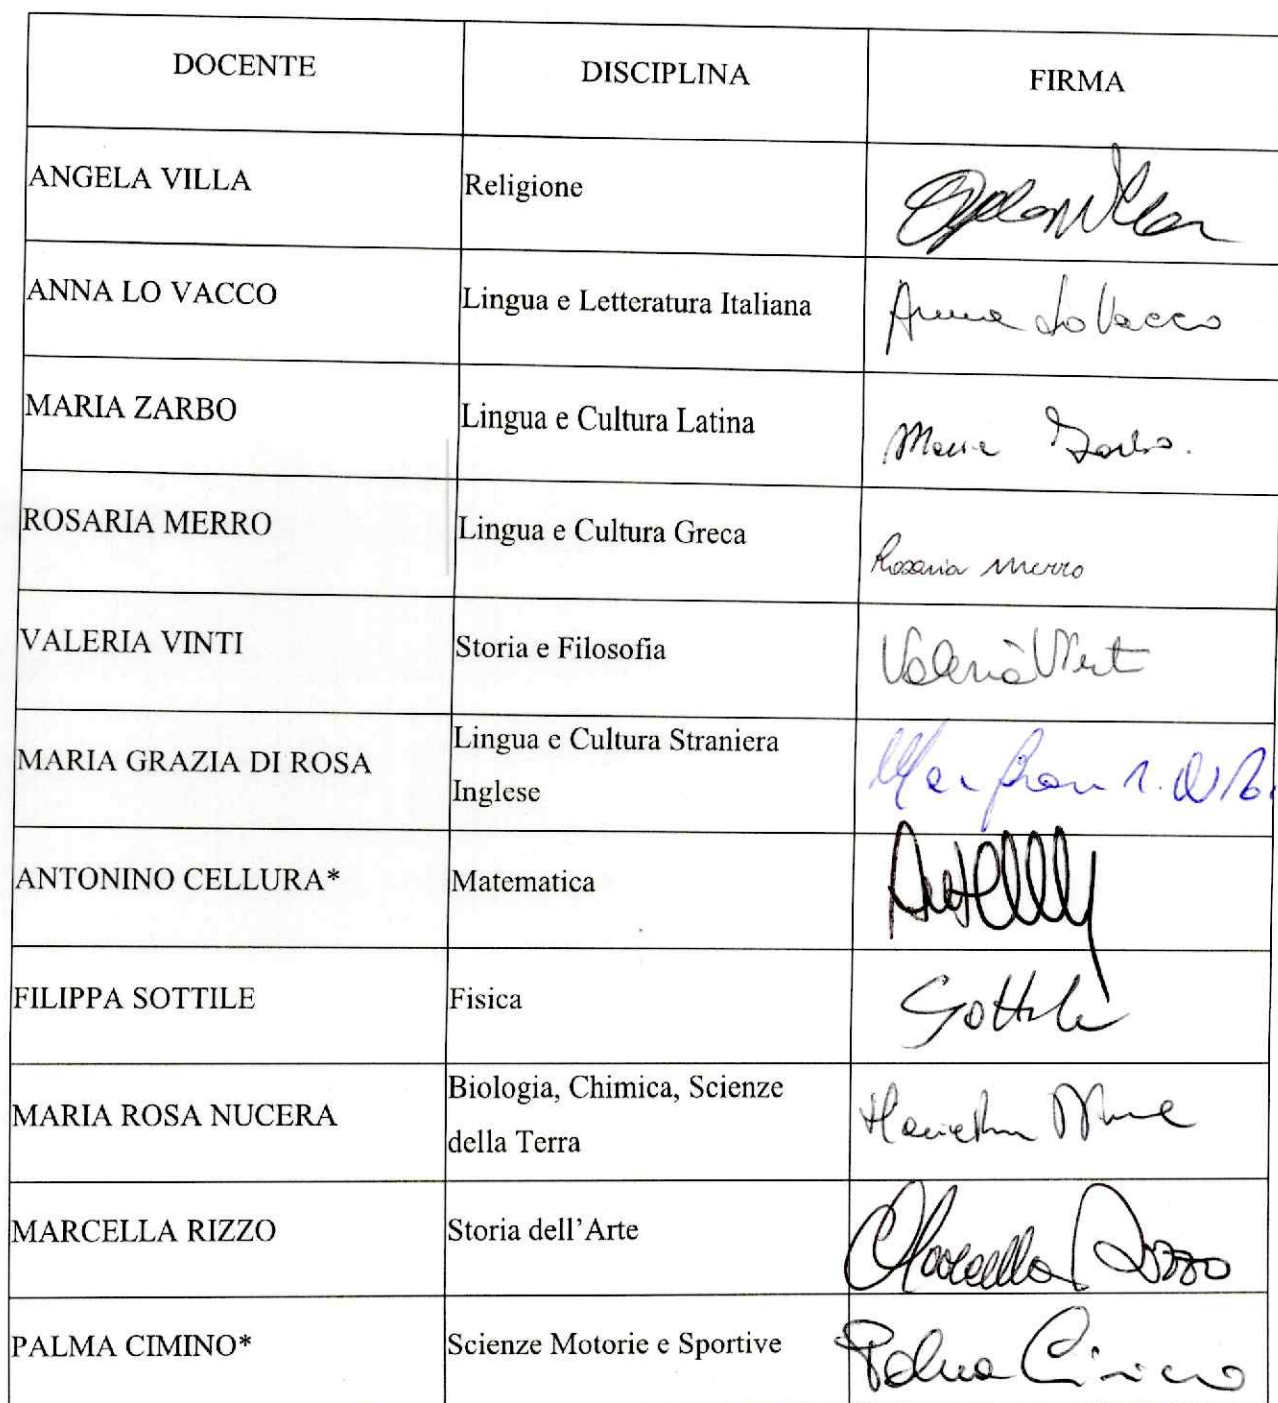 DOCENTE DISCIPLINA FIRMA
ANGELA VILLA Religione Angela Villa
ANNA LO VACCO Lingua e Letteratura Italiana Anna Lo Vacco
MARIA ZARBO Lingua e Cultura Latina Maria Zarbo
ROSARIA MERRO Lingua e Cultura Greca Rosaria Merro
VALERIA VINTI Storia e Filosofia Valeria Vinti
MARIA GRAZIA DI ROSA Lingua e Cultura Straniera
Inglese
ANTONINO CELLURA* Matematica
FILIPPA SOTTILE Fisica Sottile
MARIA ROSA NUCERA Biologia, Chimica, Scienze
della Terra
MARCELLA RIZZO Storia dell'Arte Marcella Rizzo
PALMA CIMINO* Scienze Motorie e Sportive Palma Cimino